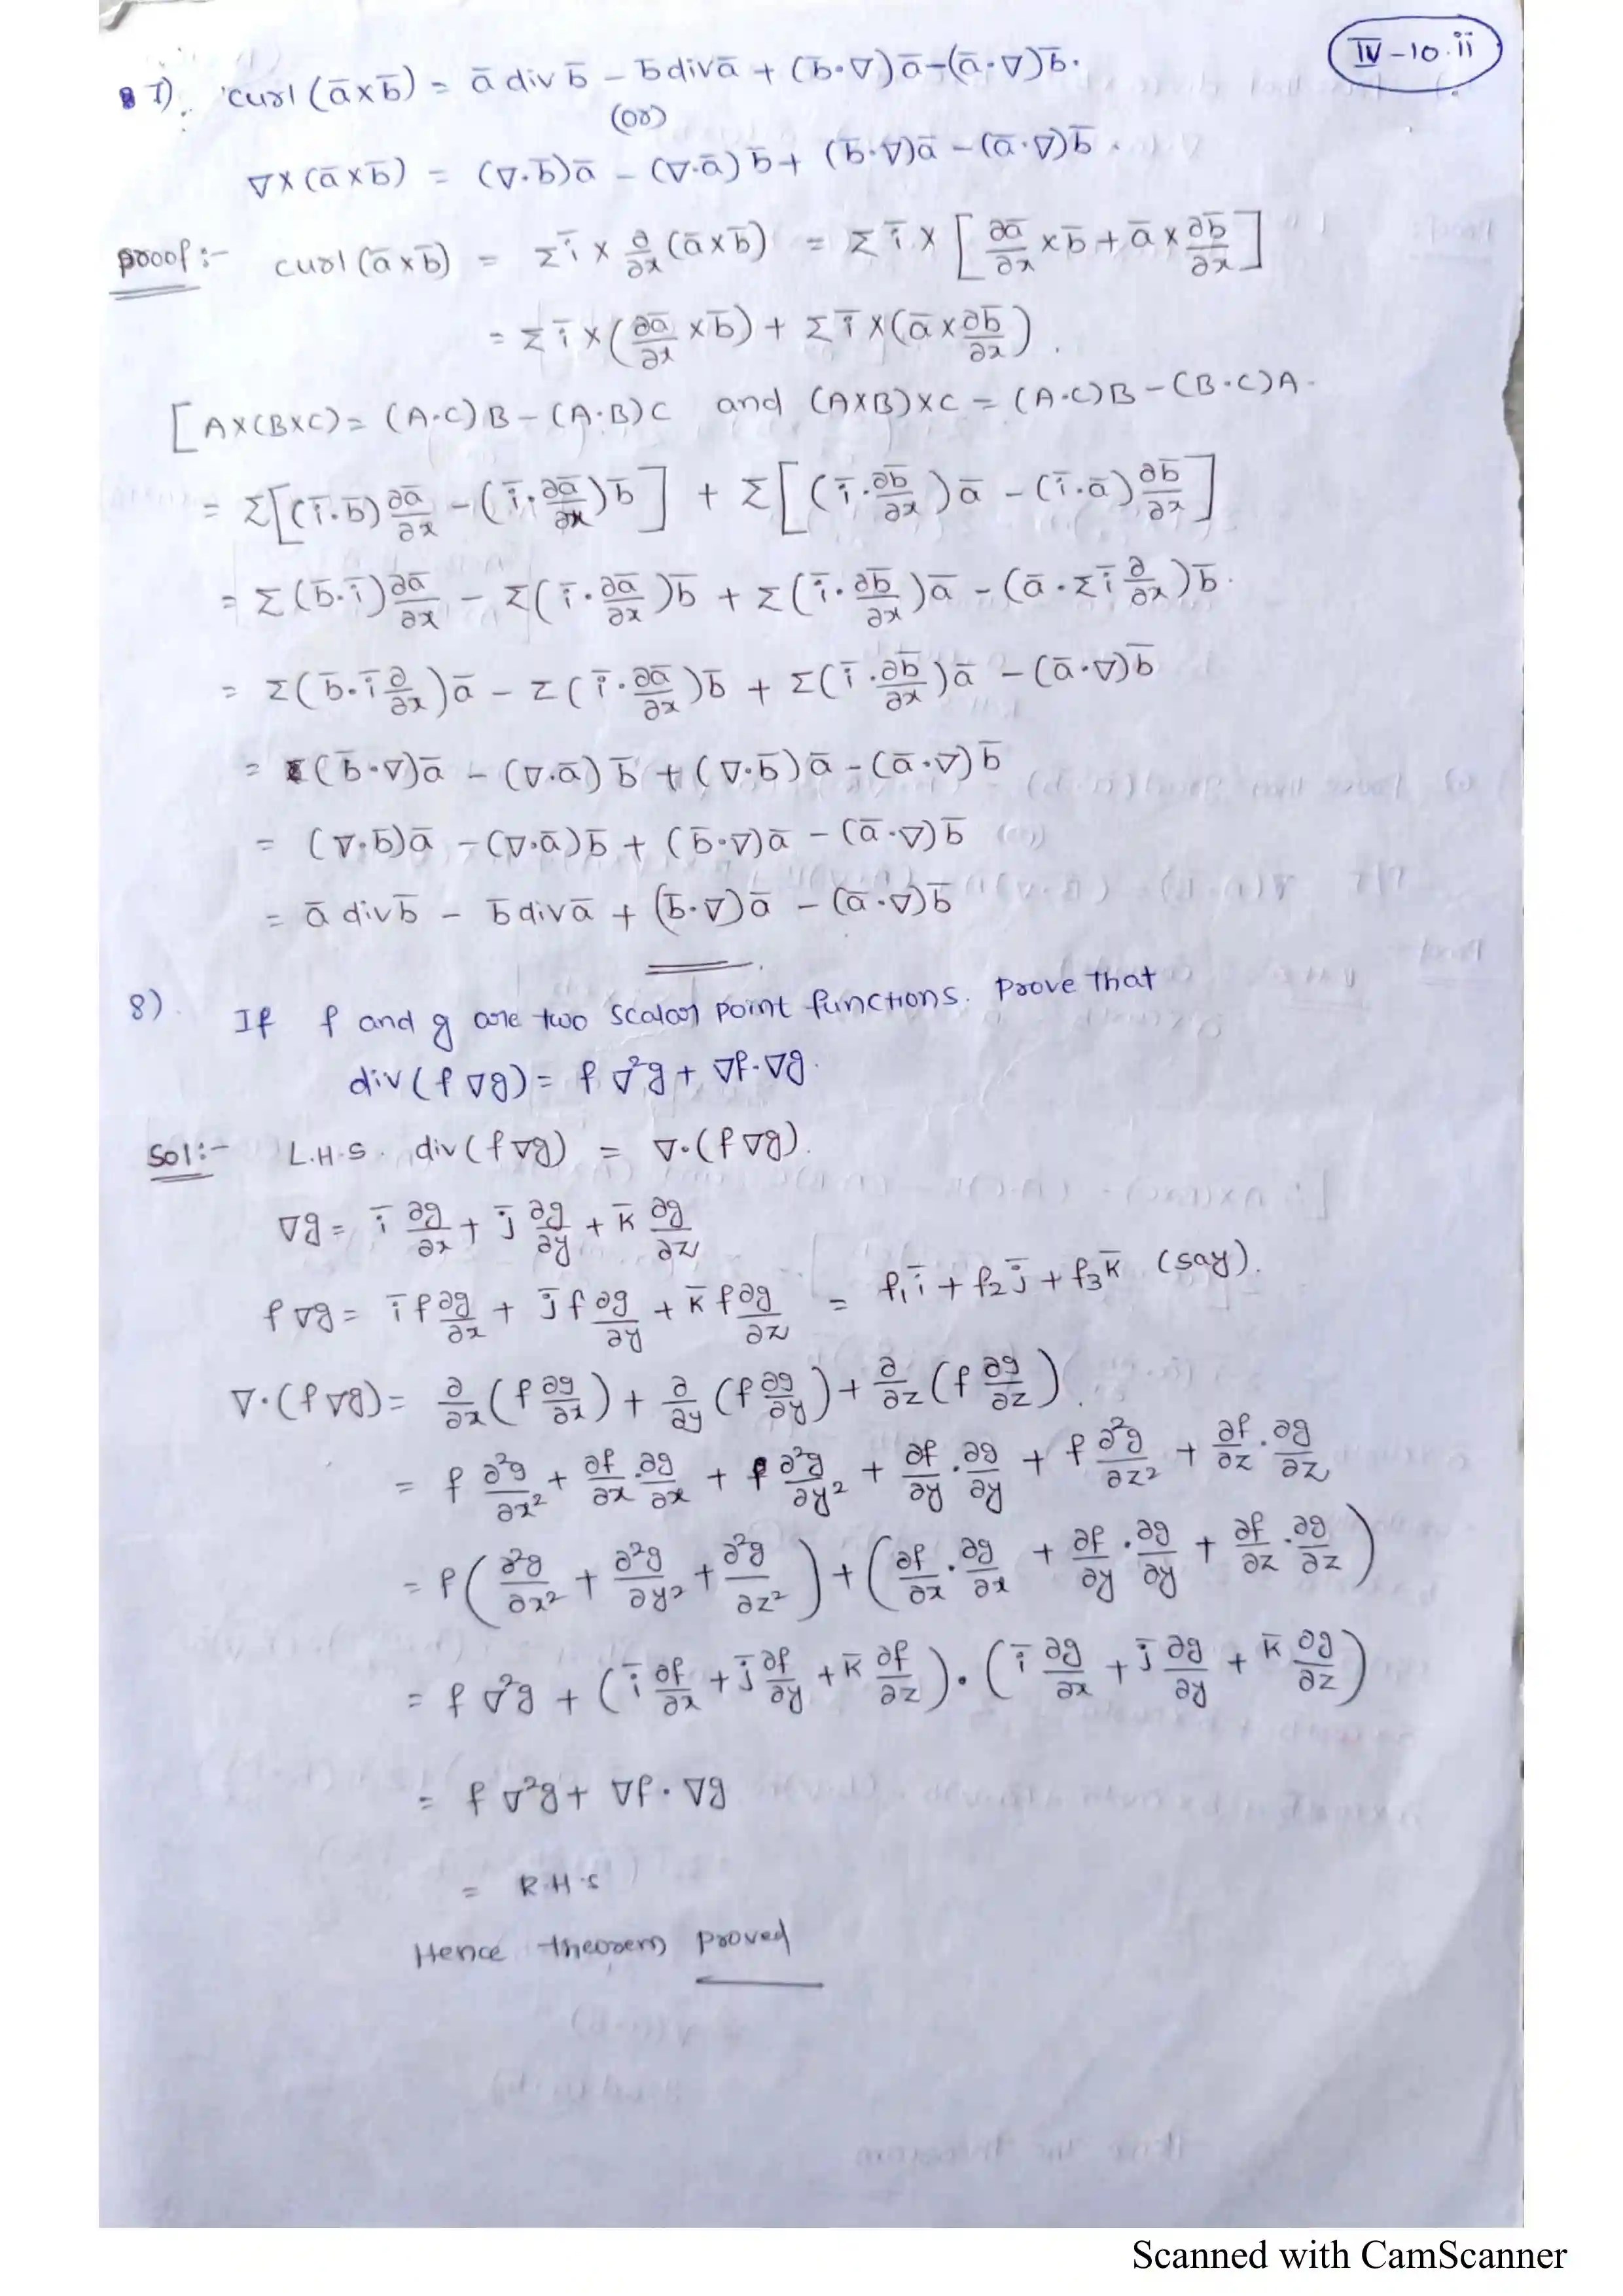 IV-10.ii
7). curl (ā×b̄) = ā div b̄ - b̄ div ā + (b̄·∇)ā-(ā·∇)b̄.
(or)
∇×(ā×b̄) = (∇·b̄)ā - (∇·ā)b̄ + (b̄·∇)ā - (ā·∇)b̄
proof:- curl(ā×b̄) = Σ ī × ∂/∂x (ā×b̄) = Σ ī × [∂ā/∂x × b̄ + ā × ∂b̄/∂x]
= Σ ī × (∂ā/∂x × b̄) + Σ ī × (ā × ∂b̄/∂x).
[A×(B×C) = (A·C)B - (A·B)C and (A×B)×C = (A·C)B - (B·C)A.
= Σ[(ī·b̄) ∂ā/∂x - (ī·∂ā/∂x)b̄] + Σ[(ī·∂b̄/∂x)ā - (ī·ā) ∂b̄/∂x]
= Σ(b̄·ī)∂ā/∂x - Σ(ī·∂ā/∂x)b̄ + Σ(ī·∂b̄/∂x)ā - (ā·Σī ∂/∂x)b̄.
= Σ(b̄·ī ∂/∂x)ā - Σ(ī·∂ā/∂x)b̄ + Σ(ī·∂b̄/∂x)ā - (ā·∇)b̄
= (b̄·∇)ā - (∇·ā)b̄ + (∇·b̄)ā - (ā·∇)b̄
= (∇·b̄)ā - (∇·ā)b̄ + (b̄·∇)ā - (ā·∇)b̄
= ā div b̄ - b̄ div ā + (b̄·∇)ā - (ā·∇)b̄
8). If f and g are two scalar point functions. Prove that
div(f∇g) = f∇²g + ∇f·∇g.
Sol:- L.H.S. div(f∇g) = ∇·(f∇g).
∇g = ī ∂g/∂x + j̄ ∂g/∂y + k̄ ∂g/∂z
f∇g = ī f ∂g/∂x + j̄ f ∂g/∂y + k̄ f ∂g/∂z = f₁ī + f₂j̄ + f₃k̄ (say).
∇·(f∇g) = ∂/∂x (f ∂g/∂x) + ∂/∂y (f ∂g/∂y) + ∂/∂z (f ∂g/∂z).
= f ∂²g/∂x² + ∂f/∂x·∂g/∂x + f ∂²g/∂y² + ∂f/∂y·∂g/∂y + f ∂²g/∂z² + ∂f/∂z·∂g/∂z
= f(∂²g/∂x² + ∂²g/∂y² + ∂²g/∂z²) + (∂f/∂x·∂g/∂x + ∂f/∂y·∂g/∂y + ∂f/∂z·∂g/∂z)
= f∇²g + (ī ∂f/∂x + j̄ ∂f/∂y + k̄ ∂f/∂z)·(ī ∂g/∂x + j̄ ∂g/∂y + k̄ ∂g/∂z)
= f∇²g + ∇f·∇g
= R.H.S
Hence theorem proved
Scanned with CamScanner